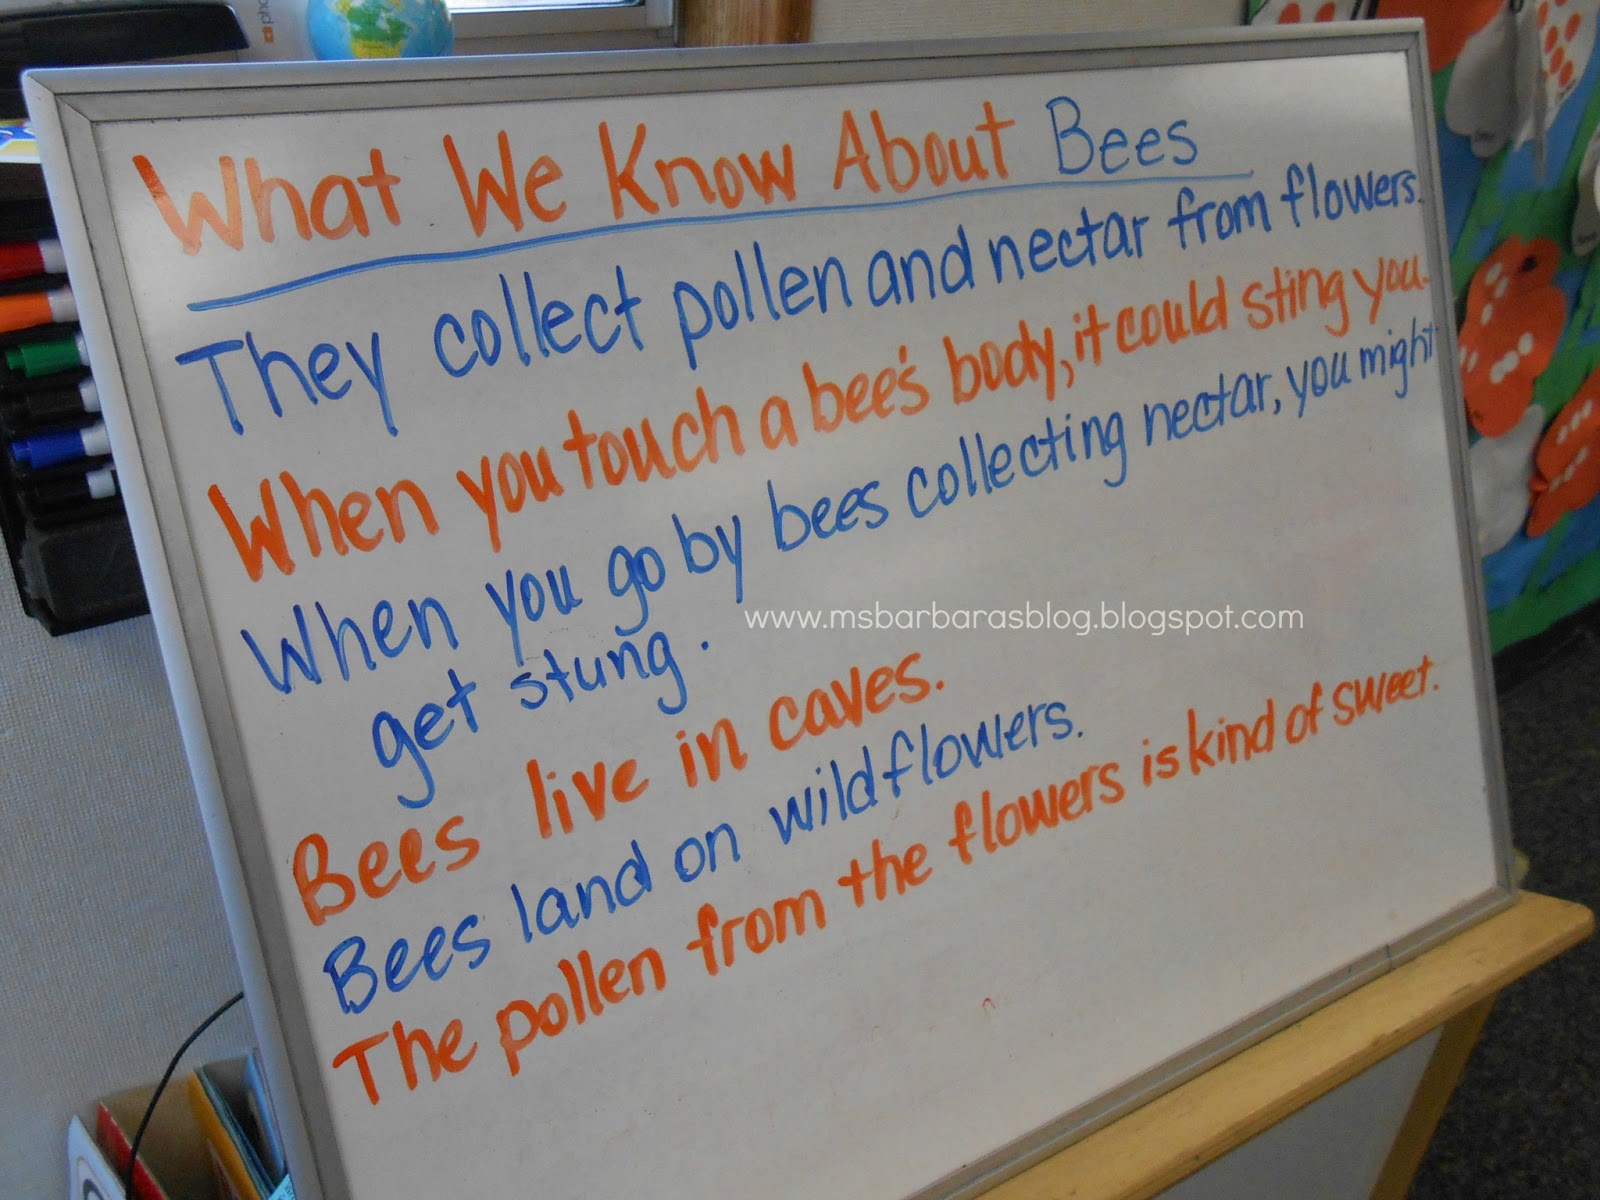 What We Know About Bees
They collect pollen and nectar from flowers.
When you touch a bee's body, it could sting you.
When you go by bees collecting nectar, you might
get stung.
www.msbarbarasblog.blogspot.com
Bees live in caves.
Bees land on wildflowers.
The pollen from the flowers is kind of sweet.